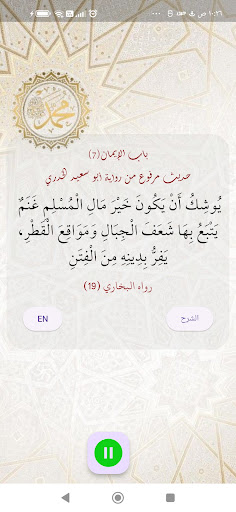 ١٠:٢٦ ص
محمد
باب الإيمان(7)
حديث مرفوع من رواية ابو سعيد الخدري
يُوشِكُ أَنْ يَكُونَ خَيْرَ مَالِ الْمُسْلِمِ غَنَمٌ
يَتْبَعُ بِهَا شَعَفَ الْجِبَالِ وَمَوَاقِعَ الْقَطْرِ،
يَفِرُّ بِدِينِهِ مِنَ الْفِتَنِ
رواه البخاري (19)
EN
الشرح